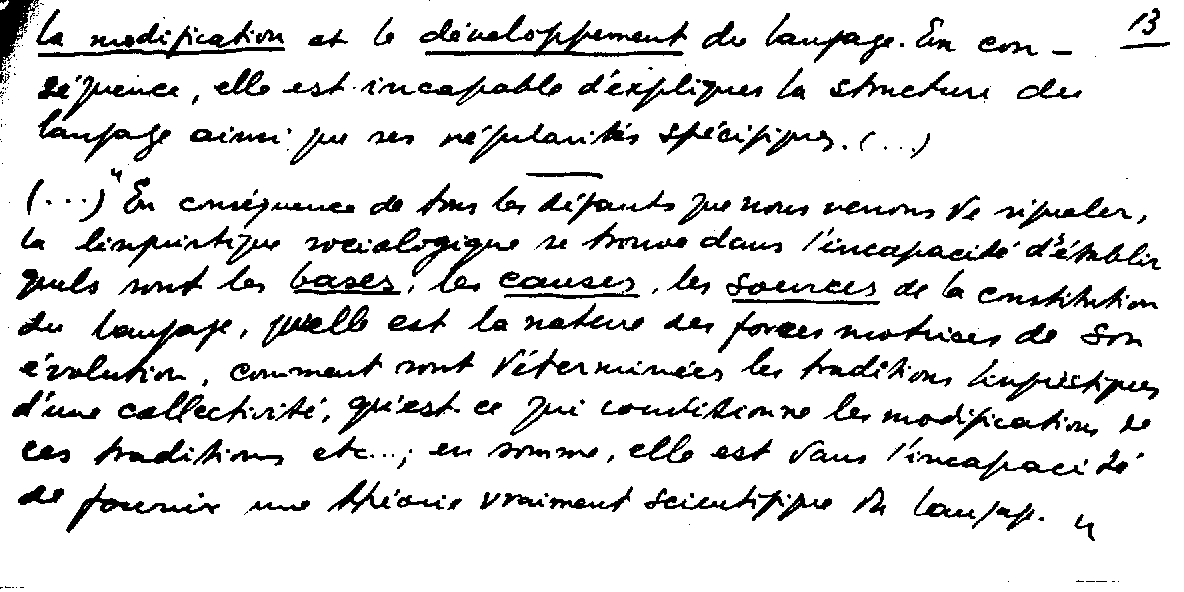 13
la modification et le développement du langage. En con-
séquence, elle est incapable d'expliquer la structure du
langage ainsi que ses régularités spécifiques. (...)
(...) "En conséquence de tous les défauts que nous venons de signaler,
la linguistique sociologique se trouve dans l'incapacité d'établir
quels sont les bases, les causes, les sources de la constitution
du langage, quelle est la nature des forces motrices de son
évolution, comment sont déterminées les traditions linguistiques
d'une collectivité, qu'est-ce qui conditionne les modifications de
ces traditions etc...; en somme, elle est dans l'incapacité
de fournir une théorie vraiment scientifique du langage. "